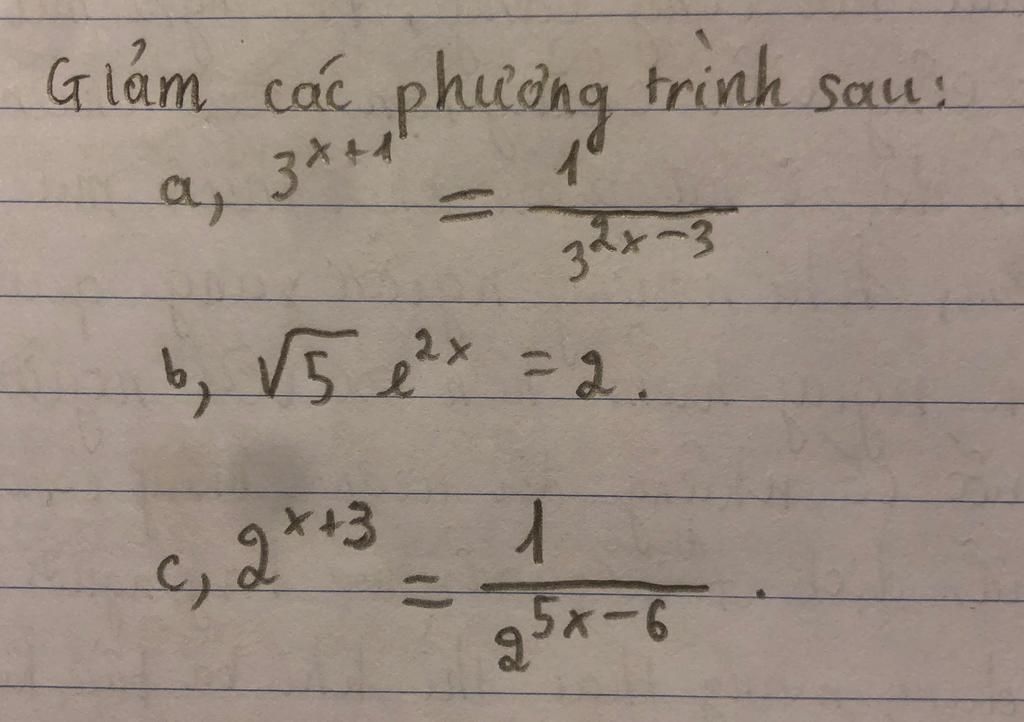 Giảm các phương trình sau:
a, 3^{x+1} = \frac{1}{3^{2x-3}}
b, √5 e^{2x} = 2.
c, 2^{x+3} = \frac{1}{2^{5x-6}}.